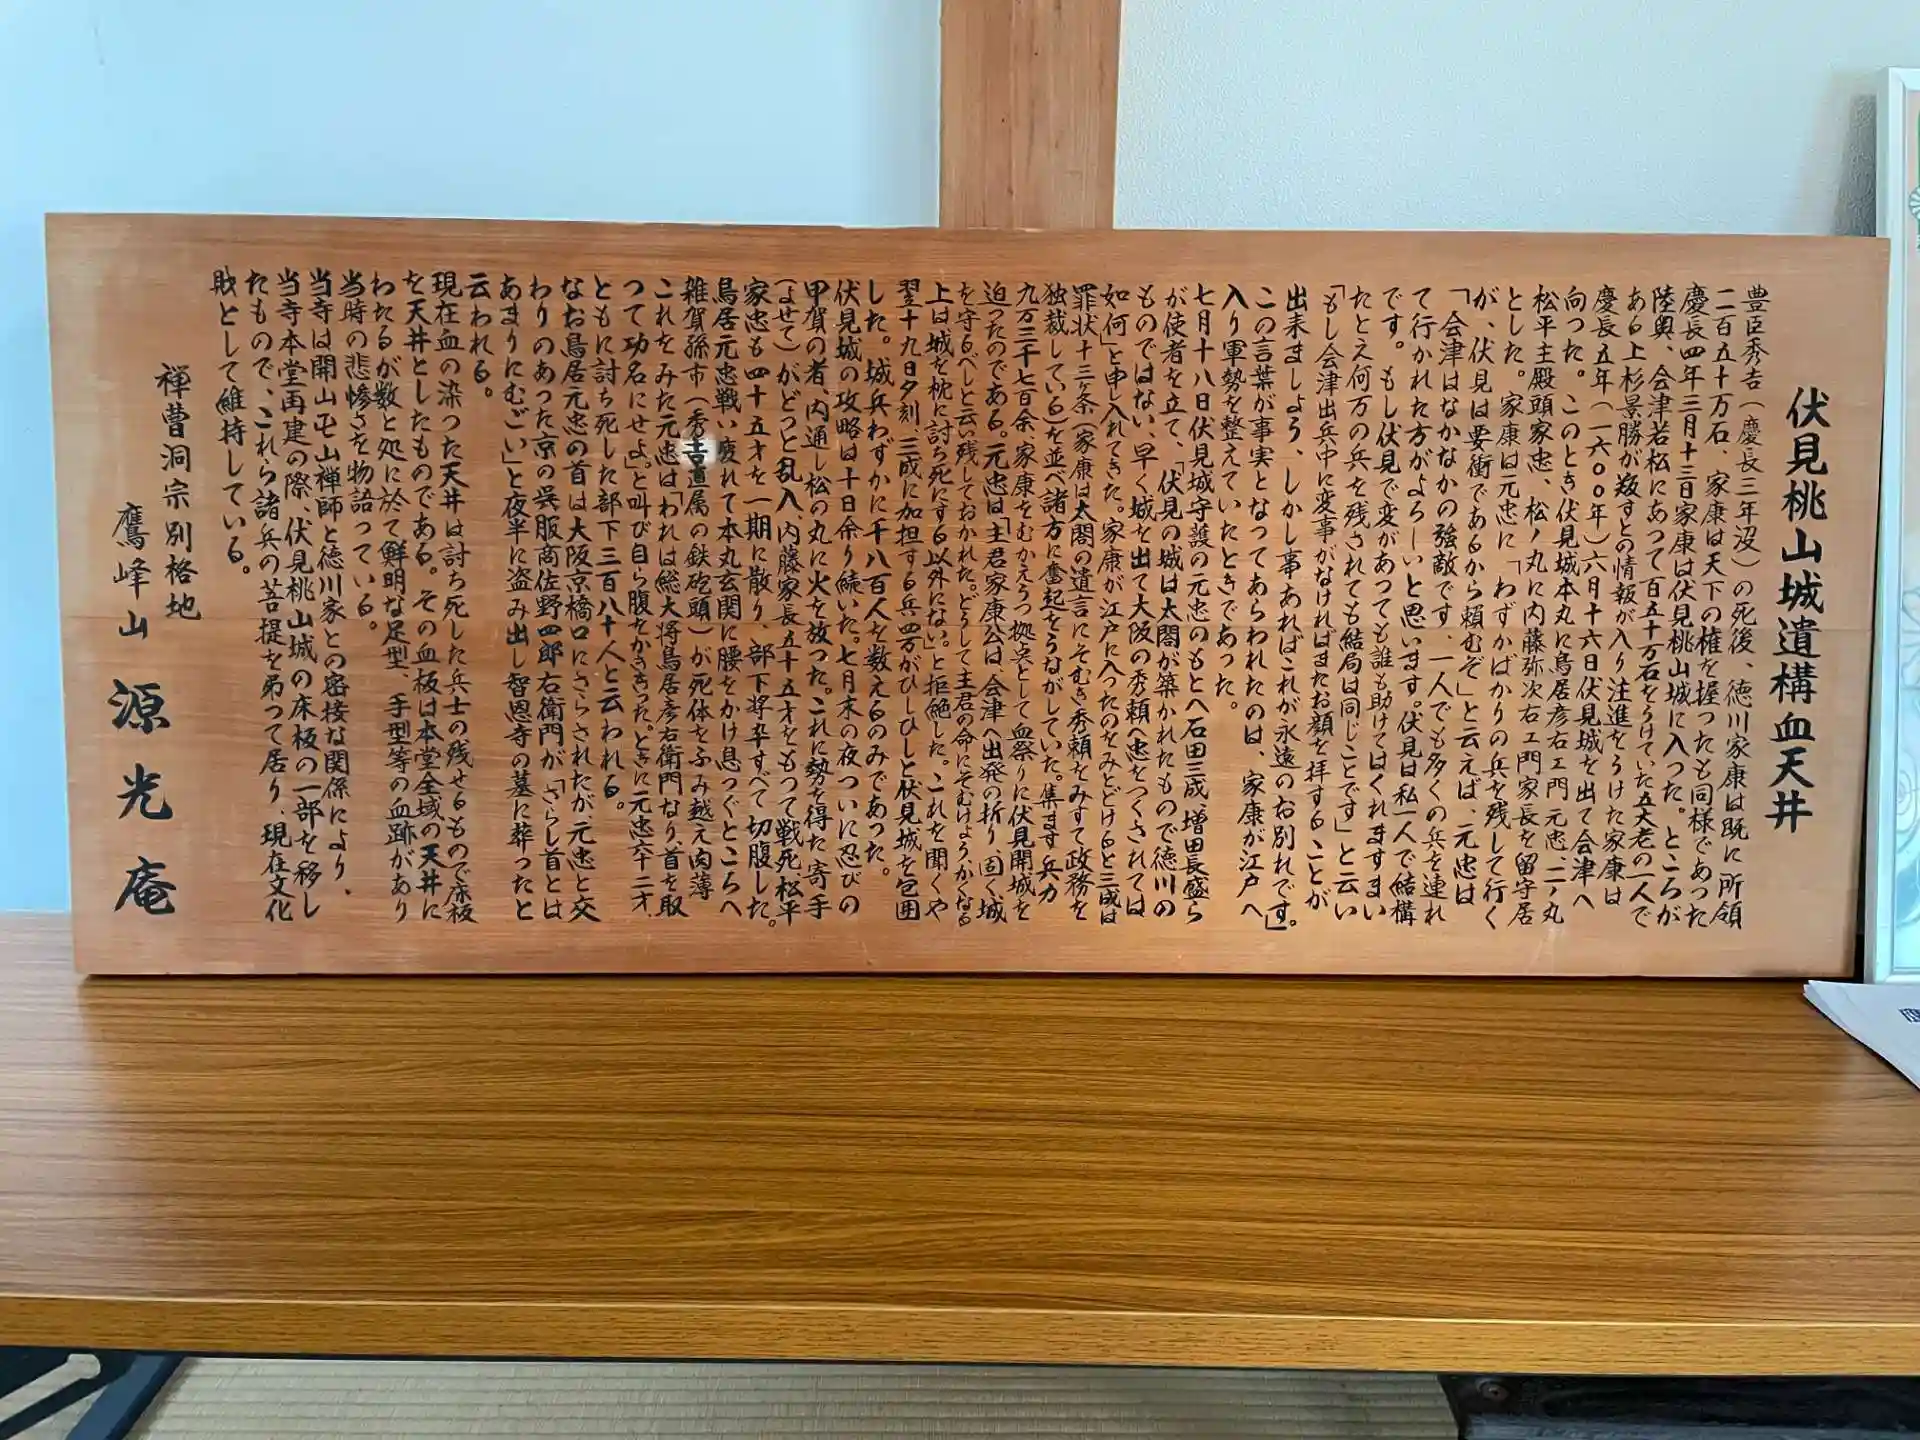 伏見桃山城遺構血天井
豊臣秀吉(慶長三年没)の死後、徳川家康は既に所領
二百五十万石、家康は天下の権を握ったも同様であった
慶長四年三月十三日家康は伏見桃山城に入った。ところが
陸奥、会津若松にあって百五十万石をうけていた五大老の一人で
ある上杉景勝が叛すとの情報が入り注進をうけた家康は
慶長五年(一六〇〇年)六月十六日伏見城を出て会津へ
向った。このとき伏見城本丸に鳥居彦右ェ門元忠、二ノ丸
松平主殿頭家忠、松ノ丸に内藤弥次右ェ門家長を留守居
とした。家康は元忠に「わずかばかりの兵を残して行く
が、伏見は要衝であるから頼むぞ」と云えば、元忠は
「会津はなかなかの強敵です、一人でも多くの兵を連れ
て行かれた方がよろしいと思います。伏見は私一人で結構
です。もし伏見で変があっても誰も助けてはくれますまい
たとえ何万の兵を残されても結局は同じことです」と云い
「もし会津出兵中に変事がなければまたお顔を拝することが
出来ましょう、しかし事あればこれが永遠のお別れです」。
この言葉が事実となってあらわれたのは、家康が江戸へ
入り軍勢を整えていたときであった。
七月十八日伏見城守護の元忠のもとへ石田三成、増田長盛ら
が使者を立て、「伏見の城は太閤が築かれたもので徳川の
ものではない、早く城を出て大阪の秀頼へ忠をつくされては
如何」と申し入れてきた。家康が江戸に入ったのをみとどけると三成は
罪状十三条(家康は太閤の遺言にそむき秀頼をみすて政務を
独裁している)を並べ諸方に奮起をうながしていた。集ます兵力
九万三千七百余、家康をむかえうつ拠点として血祭りに伏見開城を
迫ったのである。元忠は「主君家康公は、会津へ出発の折り、固く城
を守るべしと云い残しておかれた。どうして主君の命にそむけようか、かくなる
上は城を枕に討ち死にする以外にない。」と拒絶した。これを聞くや
翌十九日夕刻、三成に加担する兵四万がひしひしと伏見城を包囲
した。城兵わずかに千八百人を数えるのみであった。
伏見城の攻略は十日余り続いた。七月末の夜ついに忍びの
甲賀の者、内通し松の丸に火を放った。これに勢を得た寄手
(よせて)がどっと乱入、内藤家長五十五才をもって戦死松平
家忠も四十五才を一期に散り、部下将卒すべて切腹した。
鳥居元忠戦い疲れて本丸玄関に腰をかけ息つぐところへ
雑賀孫市(秀吉直属の鉄砲頭)が死体をふみ越え肉薄
これをみた元忠は「われは総大将鳥居彦右衛門なり首を取
つて功名にせよ」。と叫び自ら腹をかききった。ときに元忠六十二才、
ともに討ち死した部下三百八十人と云われる。
なお鳥居元忠の首は大阪京橋口にさらされたが、元忠と交
わりのあった京の呉服商佐野四郎右衛門が「さらし首とは
あまりにむごい」と夜半に盗み出し智恩寺の墓に葬ったと
云われる。
現在血の染った天井は討ち死した兵士の残せるもので床板
を天井としたものである。その血板は本堂全域の天井に
わたるが数と処に於て鮮明な足型、手型等の血跡があり
当時の悲惨さを物語っている。
当寺は開山卍山禅師と徳川家との密接な関係により、
当寺本堂再建の際、伏見桃山城の床板の一部を移し
たもので、これら諸兵の菩提を弔って居り、現在文化
財として維持している。
禅曹洞宗別格地
鷹峰山 源光庵